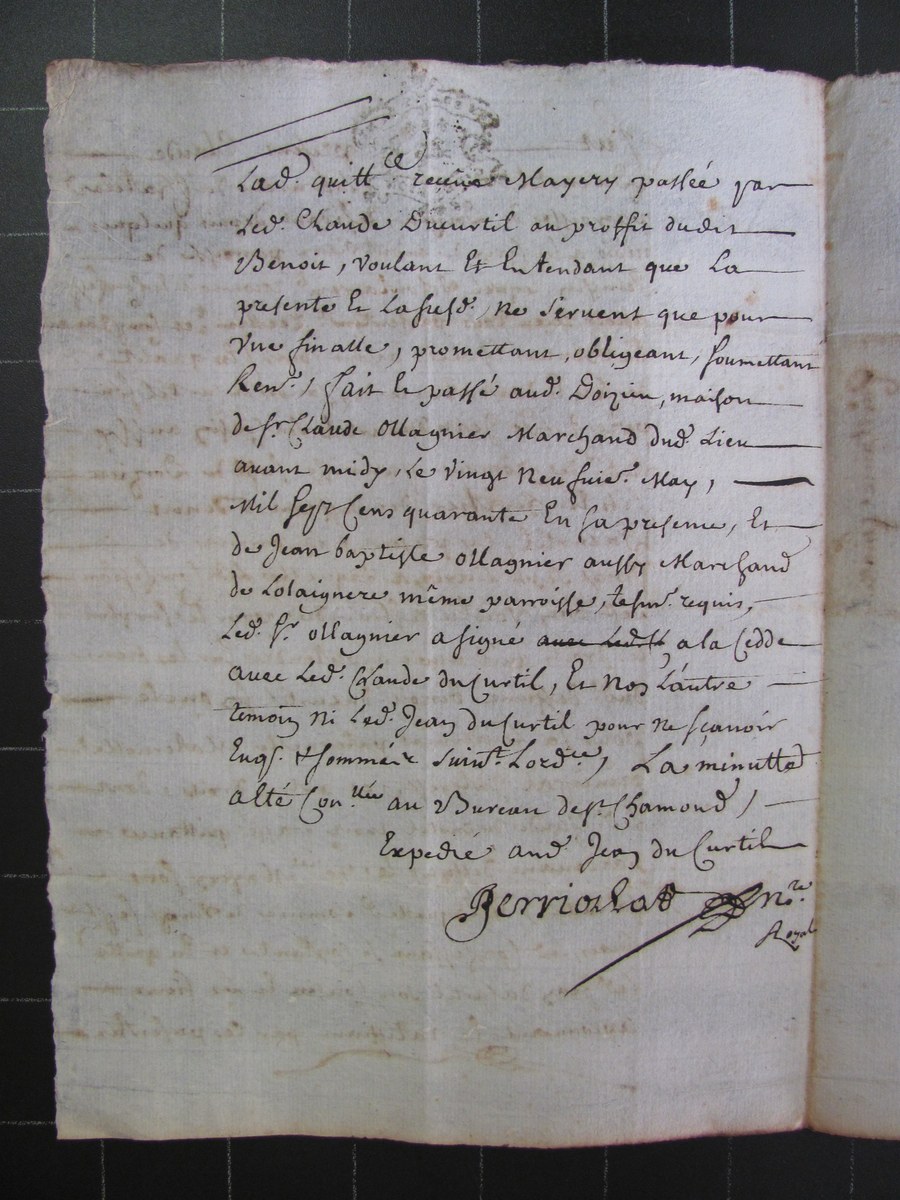 Lad. quitt.ce receue Mayery passée par
Led. Claude Ducurtil au proffit dudit
Benoit, voulant Et Entendant que La
presente Et Lasusd. Ne servent que pour
Vne finalle, promettant, obligeant, soumettant
Ren. / fait Et passé aud. Doizieu, maison
de sr. Claude Ollagnier Marchand dud. Lieu
auant midy, Le vingt Neufuie. May,
Mil sept Cens quarante En sa presence, Et
de Jean baptiste Ollagnier aussy Marchand
de Lolaignere même parroisse, tesm. requis,
Led. sr. Ollagnier a signé auec Led. a la Cedde
auec Led. Claude du Curtil, Et Non L'autre
temoin Ni Led. Jean du Curtil pour Ne sçauoir
Enqs. & sommés suiut. Lord.ce, La minutte
a Eté Con.llée au Bureau de st. Chamond /
Expedié aud. Jean du Curtil
Perriolat Nore.
Royal